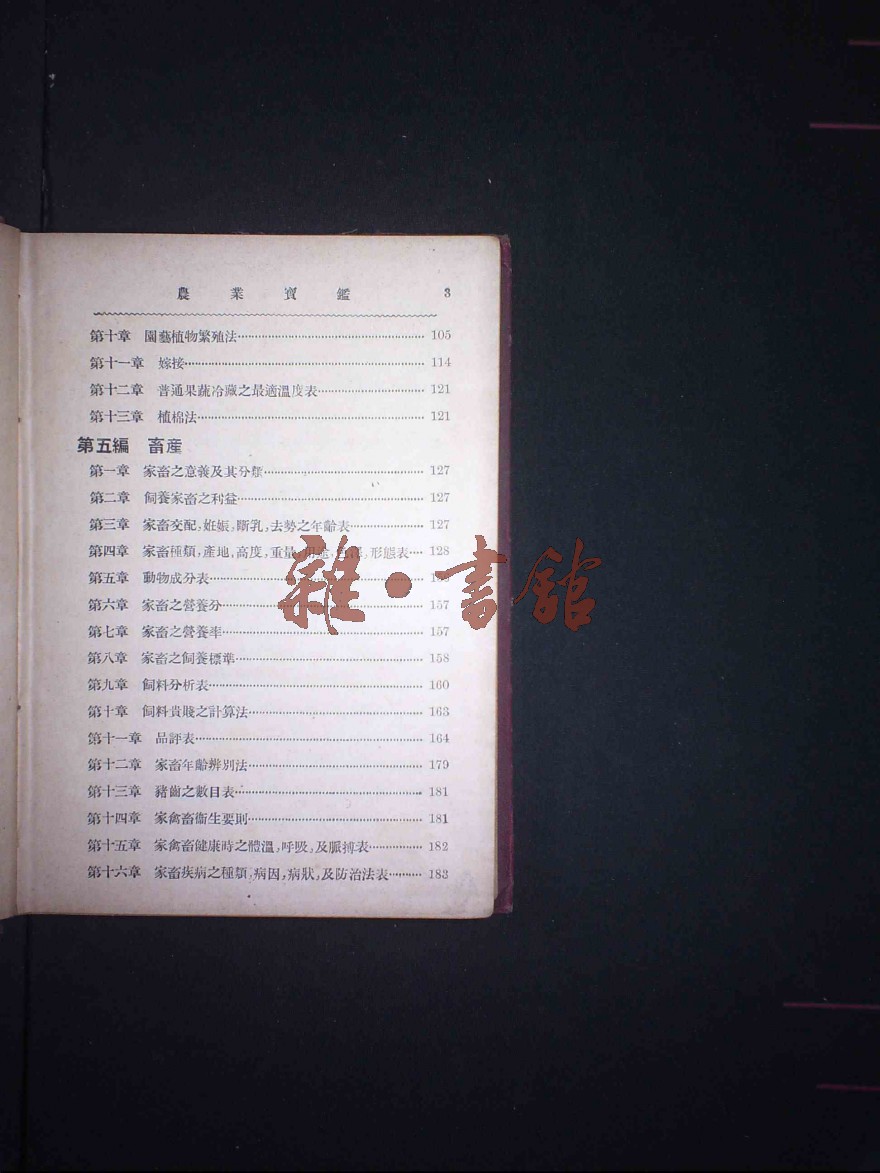 農業寶鑑 3
第十章 園藝植物繁殖法 105
第十一章 嫁接 114
第十二章 普通果蔬冷藏之最適溫度表 121
第十三章 植棉法 121
第五編 畜産
第一章 家畜之意義及其分類 127
第二章 飼養家畜之利益 127
第三章 家畜交配,妊娠,斷乳,去勢之年齡表 127
第四章 家畜種類,產地,高度,重量,用途,形態表 128
第五章 動物成分表
第六章 家畜之營養分 157
第七章 家畜之營養率 157
第八章 家畜之飼養標準 158
第九章 飼料分析表 160
第十章 飼料貴賤之計算法 163
第十一章 品評表 164
第十二章 家畜年齡辨別法 179
第十三章 豬齒之數目表 181
第十四章 家禽畜衞生要則 181
第十五章 家禽畜健康時之體溫,呼吸,及脈搏表 182
第十六章 家畜疾病之種類,病因,病狀,及防治法表 183
雜·書館